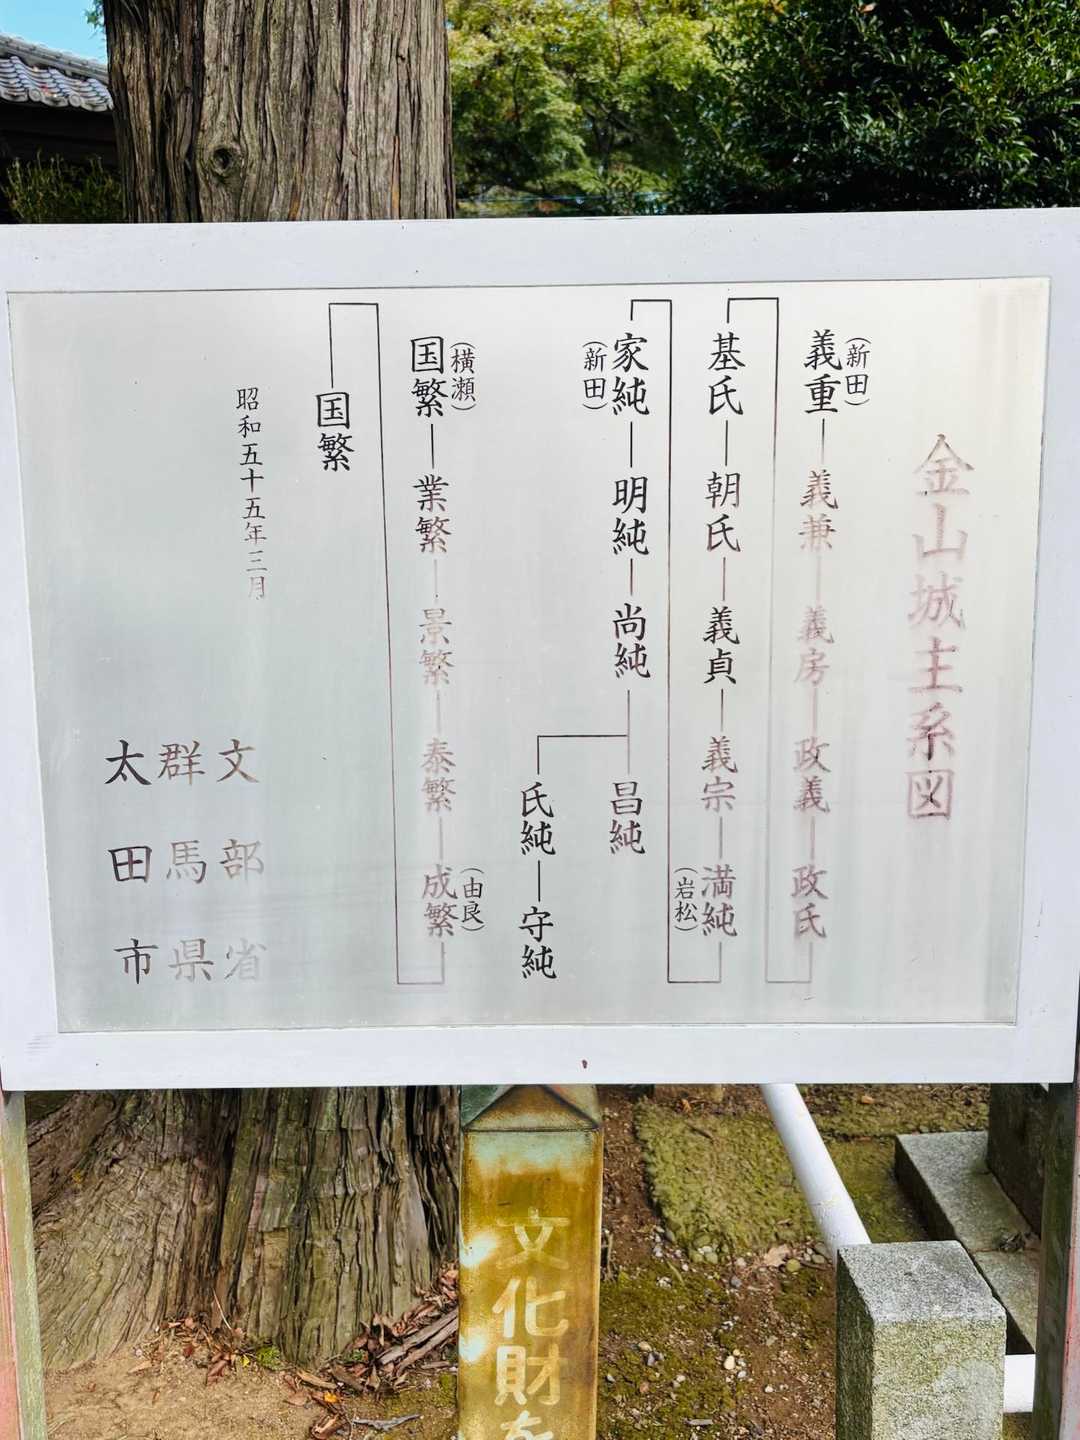 金山城主系図
義重（新田）―義兼―義房―政義―政氏
基氏―朝氏―義貞―義宗―満純（岩松）
家純（新田）―明純―尚純―昌純
氏純―守純
国繁（横瀬）―業繁―景繁―泰繁―成繁（由良）
国繁
昭和五十五年三月
文部省
群馬県
太田市
文化財を